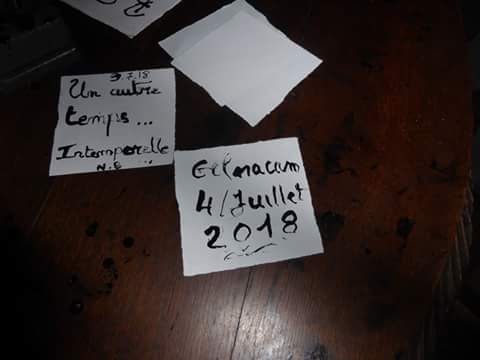 3.7.18
Un autre
temps...
Intemporelle
N.B
4/Juillet
2018